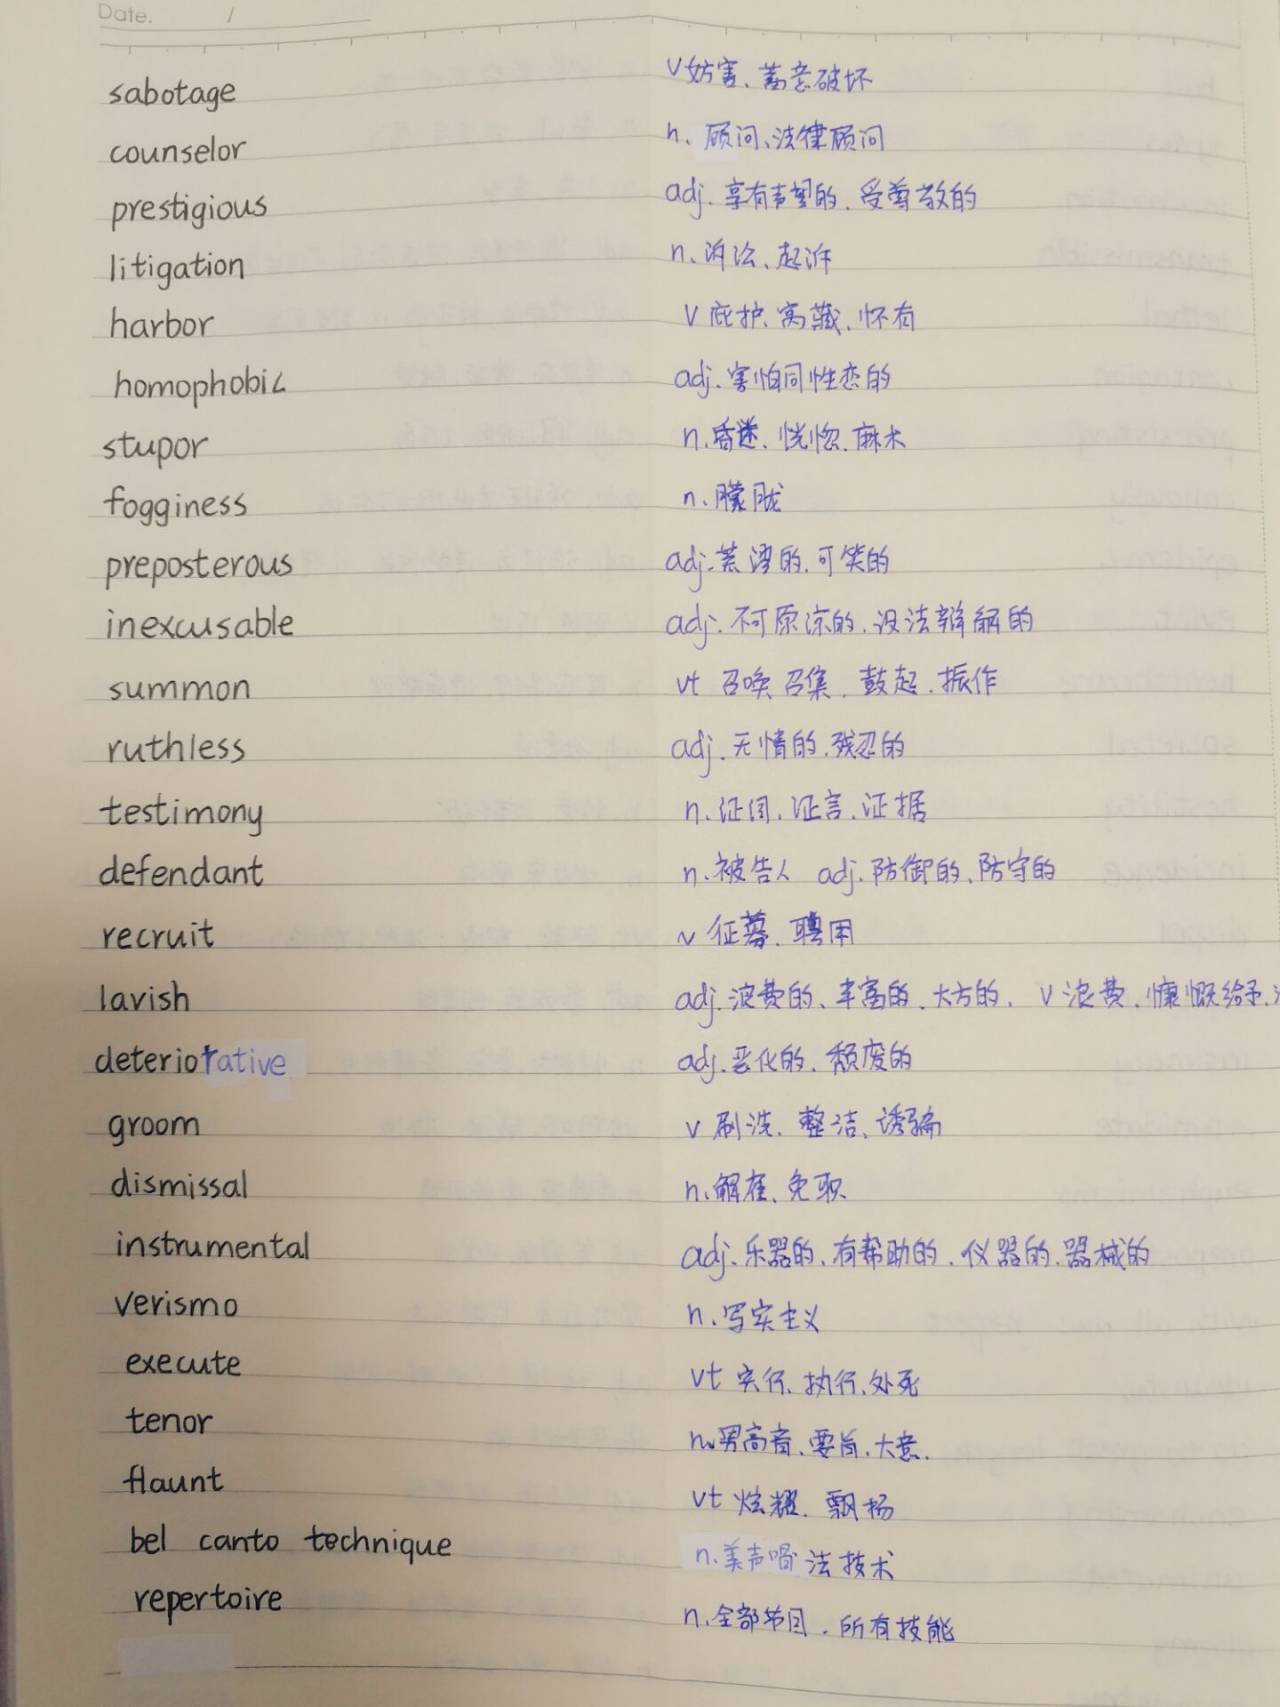 Date. /
sabotage v 妨害、蓄意破坏
counselor n. 顾问、法律顾问
prestigious adj. 享有声望的、受尊敬的
litigation n. 诉讼、起诉
harbor v 庇护、窝藏、怀有
homophobic adj. 害怕同性恋的
stupor n. 昏迷、恍惚、麻木
fogginess n. 朦胧
preposterous adj. 荒谬的、可笑的
inexcusable adj. 不可原凉的、没法辩解的
summon vt 召唤 召集、鼓起、振作
ruthless adj. 无情的、残忍的
testimony n. 证词、证言、证据
defendant n. 被告人 adj. 防御的、防守的
recruit v 征募、聘用
lavish adj. 浪费的、丰富的、大方的、 v 浪费、慷慨给予、
deteriorative adj. 恶化的、颓废的
groom v 刷洗、整洁、诱骗
dismissal n. 解雇、免职
instrumental adj. 乐器的、有帮助的、仪器的、器械的
verismo n. 写实主义
execute vt 实行、执行、处死
tenor n. 男高音、要旨、大意.
flaunt vt 炫耀、飘扬
bel canto technique n. 美声唱法技术
repertoire n. 全部节目、所有技能